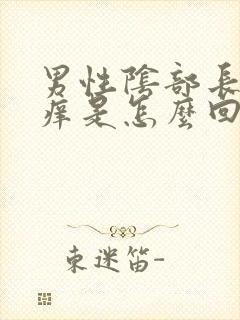 男性陰部長
痒是怎麼回
東迷笛-